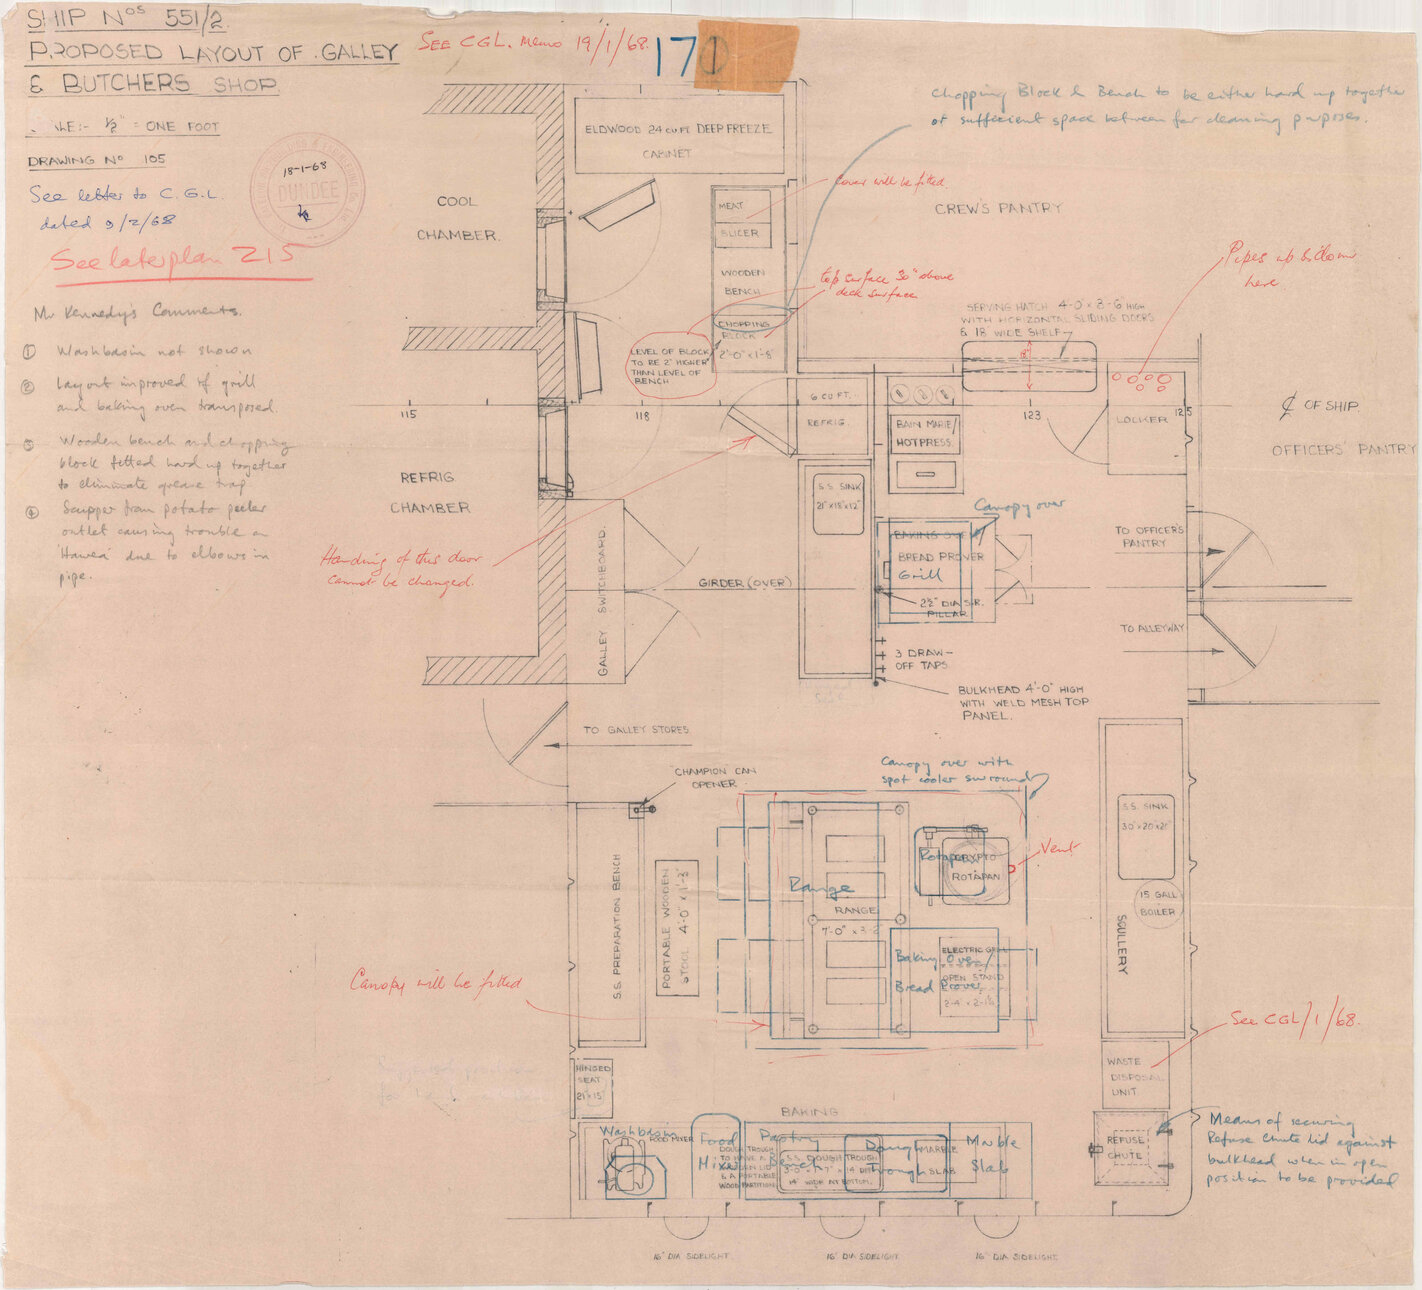 SHIP Nos 551/2
PROPOSED LAYOUT OF GALLEY
& BUTCHERS SHOP.
SEE CGL. Memo 19/1/68.
17
1
1/2" = ONE FOOT
DRAWING No 105
See letter to C.G.L.
dated 9/2/68
See later plan 215
18-1-68
DUNDEE
Mr Kennedy's Comments.
① Washbasin not shown
② Layout improved if grill
and baking oven transposed.
③ Wooden bench and chopping
block fitted hard up together
to eliminate grease trap
④ Scupper from potato peeler
outlet causing trouble on
'Hawea' due to elbows in
pipe.
Chopping Block & Bench to be either hard up together
or sufficient space between for cleaning purposes.
ELDWOOD 24 CU FT DEEP FREEZE
CABINET
COOL
CHAMBER.
MEAT
SLICER
Cover will be fitted.
CREW'S PANTRY
WOODEN
BENCH
top surface 30" above
deck surface
CHOPPING
BLOCK
2'-0" x 1'-8"
LEVEL OF BLOCK
TO BE 2" HIGHER
THAN LEVEL OF
BENCH
Pipes up & down
here
SERVING HATCH 4'-0" x 3'-6" HIGH
WITH HORIZONTAL SLIDING DOORS
& 18" WIDE SHELF
18"
115
118
123
125
6 CU FT.
REFRIG.
BAIN MARIE/
HOTPRESS.
LOCKER
℄ OF SHIP.
OFFICERS' PANTRY
REFRIG
CHAMBER
S.S. SINK
21"x18"x12"
Canopy over
BAKING OVEN/
BREAD PROVER
Grill
2½" DIA S.B.
PILLAR
TO OFFICER'S
PANTRY
Handing of this door
cannot be changed.
GALLEY SWITCHBOARD.
GIRDER (OVER)
TO ALLEYWAY
3 DRAW-
OFF TAPS
BULKHEAD 4'-0" HIGH
WITH WELD MESH TOP
PANEL.
TO GALLEY STORES
CHAMPION CAN
OPENER
Canopy over with
spot cooler surround
S.S. PREPARATION BENCH
PORTABLE WOODEN
STOOL 4'-0" x 1'-3"
Range
RANGE
7'-0" x 3'-2"
Rotapan
CRYPTO
ROTAPAN
Vent
S.S. SINK
30"x20"x21"
15 GALL
BOILER
SCULLERY
Baking Oven/
Bread Prover
ELECTRIC GRILL
OPEN STAND
2'-4" x 2'-1¼"
Canopy will be fitted
See CGL/1/68.
HINGED
SEAT
21"x15"
WASTE
DISPOSAL
UNIT
BAKING
Washbasin
FOOD MIXER
Food
Mixer
DOUGH TROUGH
TO HAVE A
WOODEN LID
& A PORTABLE
WOOD PARTITION
Pastry
Bench
S.S. DOUGH TROUGH
14" WIDE AT BOTTOM.
Dough
Trough
MARBLE
SLAB
Marble
Slab
REFUSE
CHUTE
Means of securing
Refuse Chute lid against
bulkhead when in open
position to be provided
16" DIA SIDELIGHT.
16" DIA SIDELIGHT.
16" DIA SIDELIGHT.